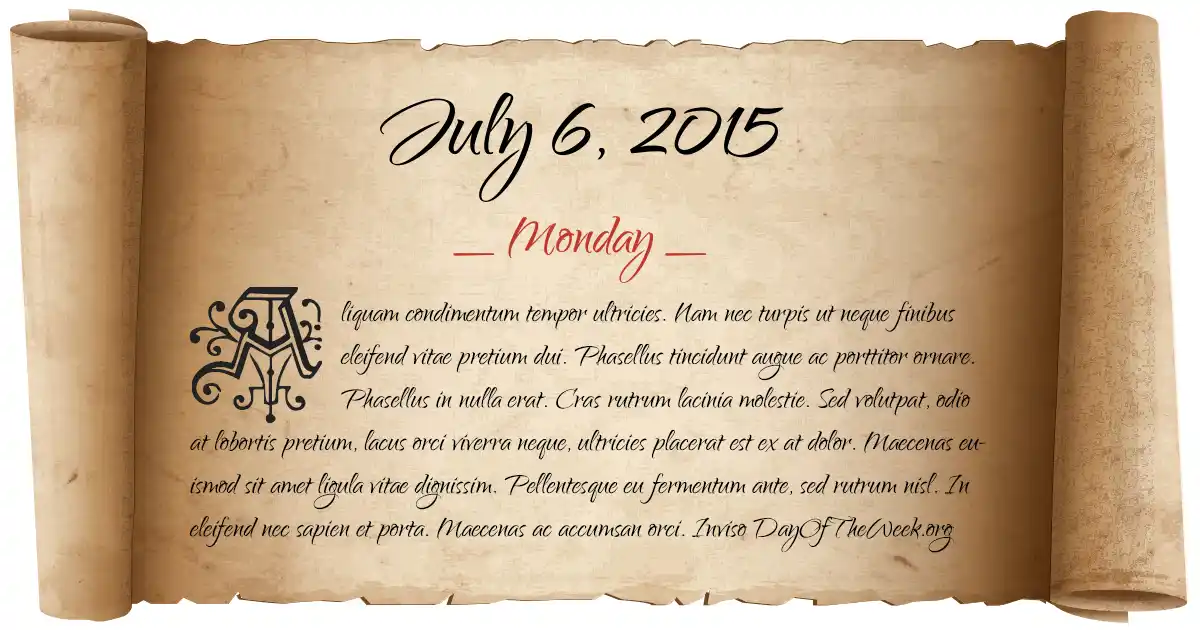 July 6, 2015
Monday
Aliquam condimentum tempor ultricies. Nam nec turpis ut neque finibus
eleifend vitae pretium dui. Phasellus tincidunt augue ac porttitor ornare.
Phasellus in nulla erat. Cras rutrum lacinia molestie. Sed volutpat, odio
at lobortis pretium, lacus orci viverra neque, ultricies placerat est ex at dolor. Maecenas eu-
ismod sit amet ligula vitae dignissim. Pellentesque eu fermentum ante, sed rutrum nisl. In
eleifend nec sapien et porta. Maecenas ac accumsan orci. Inviso DayOfTheWeek.org